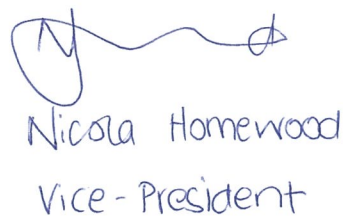 Nicola Homewood
Vice-President